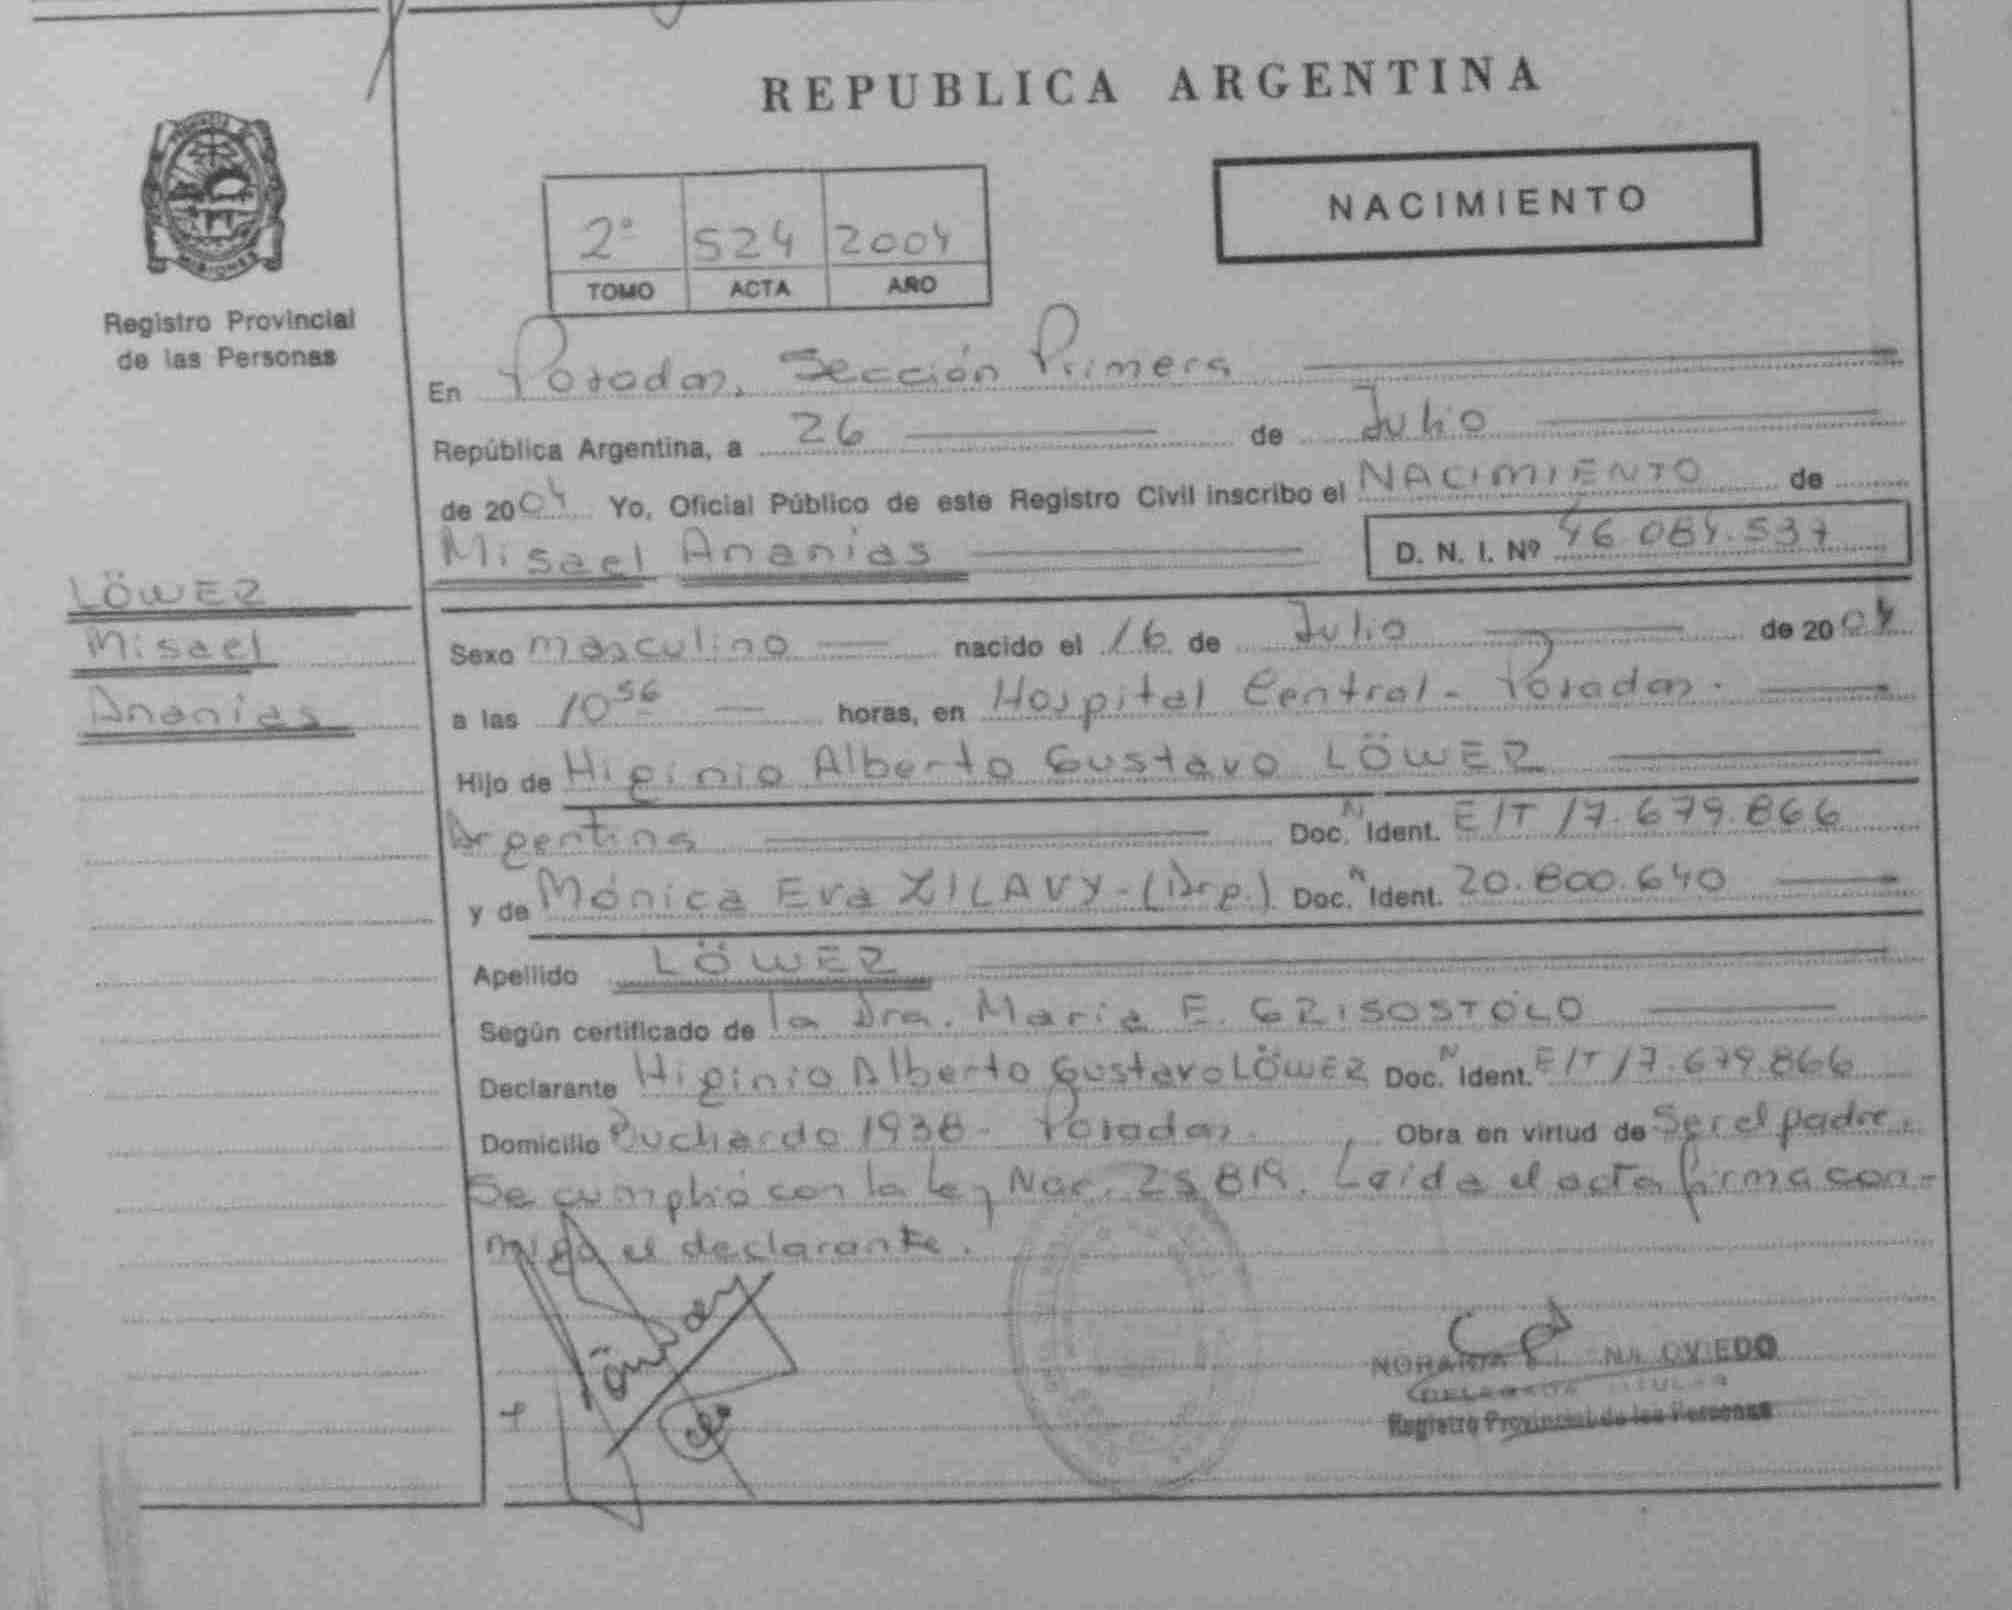 REPUBLICA ARGENTINA
NACIMIENTO
2º 524 2004
TOMO ACTA AÑO
MISIONES
Registro Provincial
de las Personas
En Posadas, Sección Primera
República Argentina, a 26 de Julio
de 2004 Yo, Oficial Público de este Registro Civil inscribo el NACIMIENTO de
Misael Ananías D. N. I. Nº 46.084.537
LÖWER
Misael
Ananías
Sexo masculino nacido el 16 de Julio de 2004
a las 10 56 horas, en Hospital Central - Posadas.
Hijo de Higinio Alberto Gustavo LÖWER
Argentina Doc. N Ident. E/T 17.679.866
y de Mónica Eva ZILAVY - (Arg.) Doc. N Ident. 20.800.640
Apellido LÖWER
Según certificado de la Dra. María E. GRISOSTOLO
Declarante Higinio Alberto Gustavo LÖWER Doc. N Ident. E/T 17.679.866
Domicilio Buchardo 1938 - Posadas. Obra en virtud de Ser el padre.
Se cumplió con la Ley Nac. 25819. Leída el acta firma con-
migo el declarante.
OVIEDO
DELEGADA TITULAR
Registro Provincial de las Personas